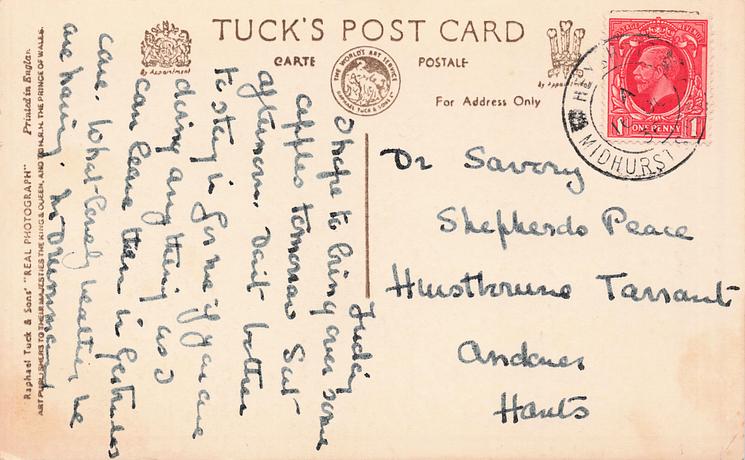 TUCK'S POST CARD
CARTE POSTALE
By Appointment
THE WORLD'S ART SERVICE
RAPHAEL TUCK & SONS LTD
By Appointment
For Address Only
MIDHURST
ONE PENNY
1
Dr Savory
Shepherds Peace
Hurstbourne Tarrant
Andover
Hants
Friday
I hope to bring over some
apples tomorrow Sat
afternoon. Don't bother
to stay in for me if you are
doing anything as I
can leave them in Gertrudes
care. What lovely weather we
are having. M Drummond
Raphael Tuck & Sons' "REAL PHOTOGRAPH" Printed in England.
ART PUBLISHERS TO THEIR MAJESTIES THE KING & QUEEN, AND TO H.R.H. THE PRINCE OF WALES.